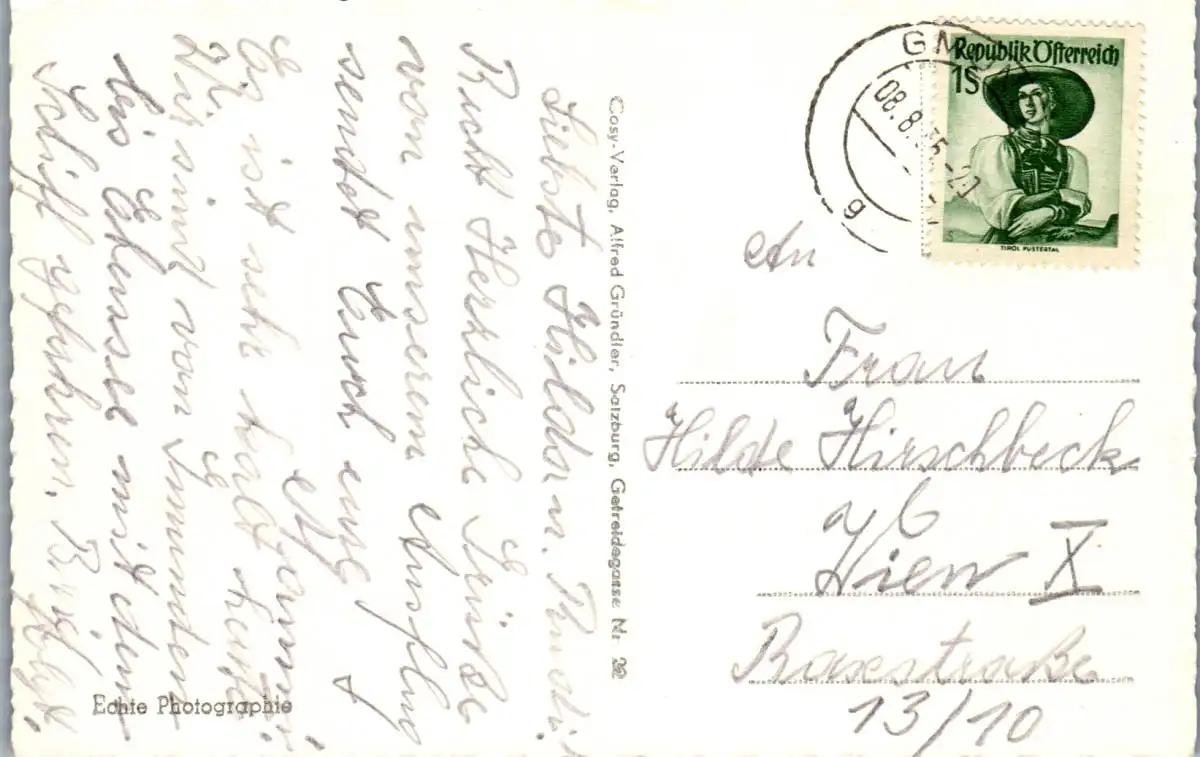 Liebste Hilda u. Rudi!
Recht Herzliche Grüße
von unserem Ausflug
sendet Euch eure
Mjammi
Es ist sehr kalt heute
Wir sind von Gmunden
bis Ebensee mit dem
Schiff gefahren.
Echte Photographie
Cosy-Verlag, Alfred Gründler, Salzburg, Getreidegasse Nr 22
Republik Österreich
1S
TIROL PUSTERTAL
08.8.55-20
g
An
Frau
Hilde Hirschbeck
Wien X
Raxstraße
13/10